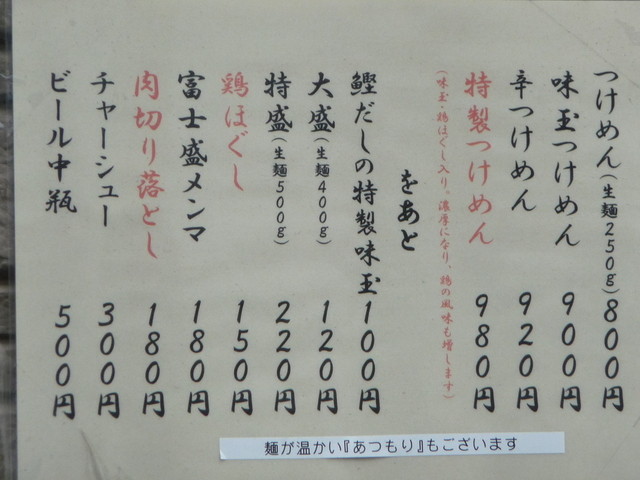 つけめん(生麺250g)800円
味玉つけめん 900円
辛つけめん 920円
特製つけめん 980円
(味玉・鶏ほぐし入り。濃厚になり、鶏の風味も増します)
をあと
鰹だしの特製味玉100円
大盛(生麺400g)120円
特盛(生麺500g)220円
鶏ほぐし 150円
富士盛メンマ 180円
肉切り落とし 180円
チャーシュー 300円
ビール中瓶 500円
麺が温かい『あつもり』もございます